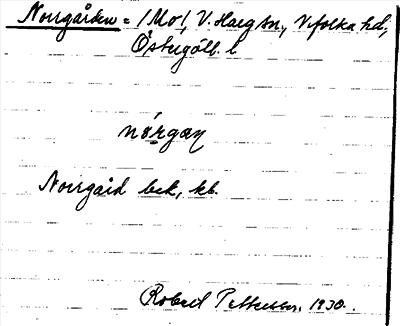 Norrgården = /Mo/, V. Harg sn., Vifolka hd,
Östergötl. l
nórgan
Norrgård bek, kb.
Robert Pettersson. 1930.